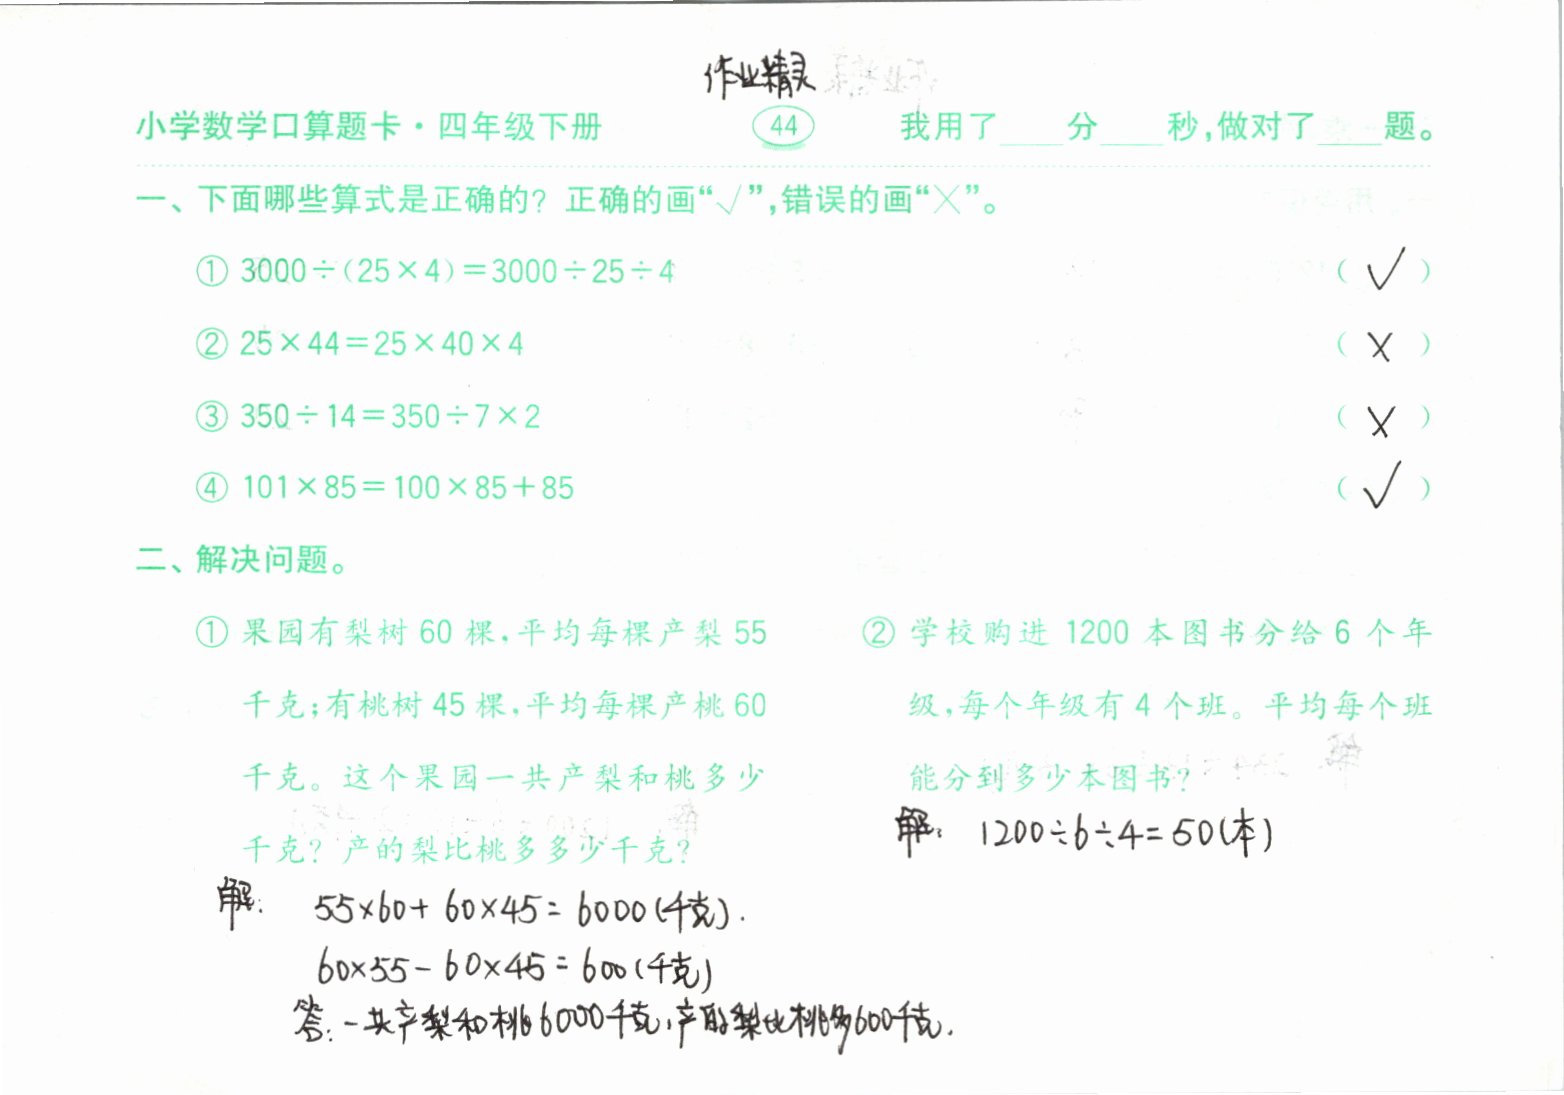 作业精灵
小学数学口算题卡·四年级下册 44 我用了____分____秒,做对了____题。
一、下面哪些算式是正确的？正确的画“√”,错误的画“×”。
① 3000÷(25×4)=3000÷25÷4 ( √ )
② 25×44=25×40×4 ( × )
③ 350÷14=350÷7×2 ( × )
④ 101×85=100×85+85 ( √ )
二、解决问题。
① 果园有梨树 60 棵,平均每棵产梨 55
千克;有桃树 45 棵,平均每棵产桃 60
千克。这个果园一共产梨和桃多少
千克？产的梨比桃多多少千克？
解: 55×60+60×45=6000(千克).
60×55-60×45=600(千克)
答:一共产梨和桃6000千克,产的梨比桃多600千克.
② 学校购进 1200 本图书分给 6 个年
级,每个年级有 4 个班。平均每个班
能分到多少本图书？
解: 1200÷6÷4=50(本)